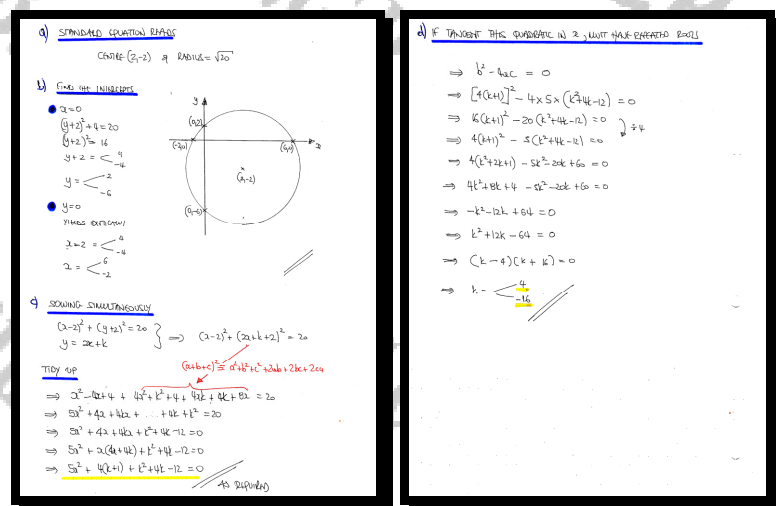 a) STANDARD EQUATION READS
CENTRE (2,-2) & RADIUS = √20
b) FIND THE INTERCEPTS
x=0
(y+2)²+4=20
(y+2)² = 16
y+2 = < 4
-4
y = < 2
-6
y=0
YIELDS EXACTLY
x-2 = < 4
-4
x = < 6
-2
y
(0,2)
(-2,0)
(6,0)
x
(2,-2)
(0,-6)
c) SOLVING SIMULTANEOUSLY
(x-2)² + (y+2)² = 20
y = 2x+k
⇒ (x-2)² + (2x+k+2)² = 20
(a+b+c)² ≡ a²+b²+c²+2ab+2bc+2ca
TIDY UP
⇒ x² -4x+4 + 4x²+k²+4 + 4xk + 4k + 8x = 20
⇒ 5x² + 4x + 4kx + ... + 4k + k² = 20
⇒ 5x² + 4x + 4kx + k² + 4k -12 = 0
⇒ 5x² + x(4+4k) + k² + 4k -12 = 0
⇒ 5x² + 4(k+1) + k² + 4k -12 = 0
AS REQUIRED
d) IF TANGENT THIS QUADRATIC IN x, MUST HAVE REPEATED ROOTS
⇒ b² - 4ac = 0
⇒ [4(k+1)]² - 4×5×(k²+4k-12) = 0
⇒ 16(k+1)² - 20(k²+4k-12) = 0
÷4
⇒ 4(k+1)² - 5(k²+4k-12) = 0
⇒ 4(k²+2k+1) - 5k² - 20k + 60 = 0
⇒ 4k² + 8k + 4 - 5k² - 20k + 60 = 0
⇒ -k² - 12k + 64 = 0
⇒ k² + 12k - 64 = 0
⇒ (k - 4)(k + 16) = 0
⇒ k = < 4
-16